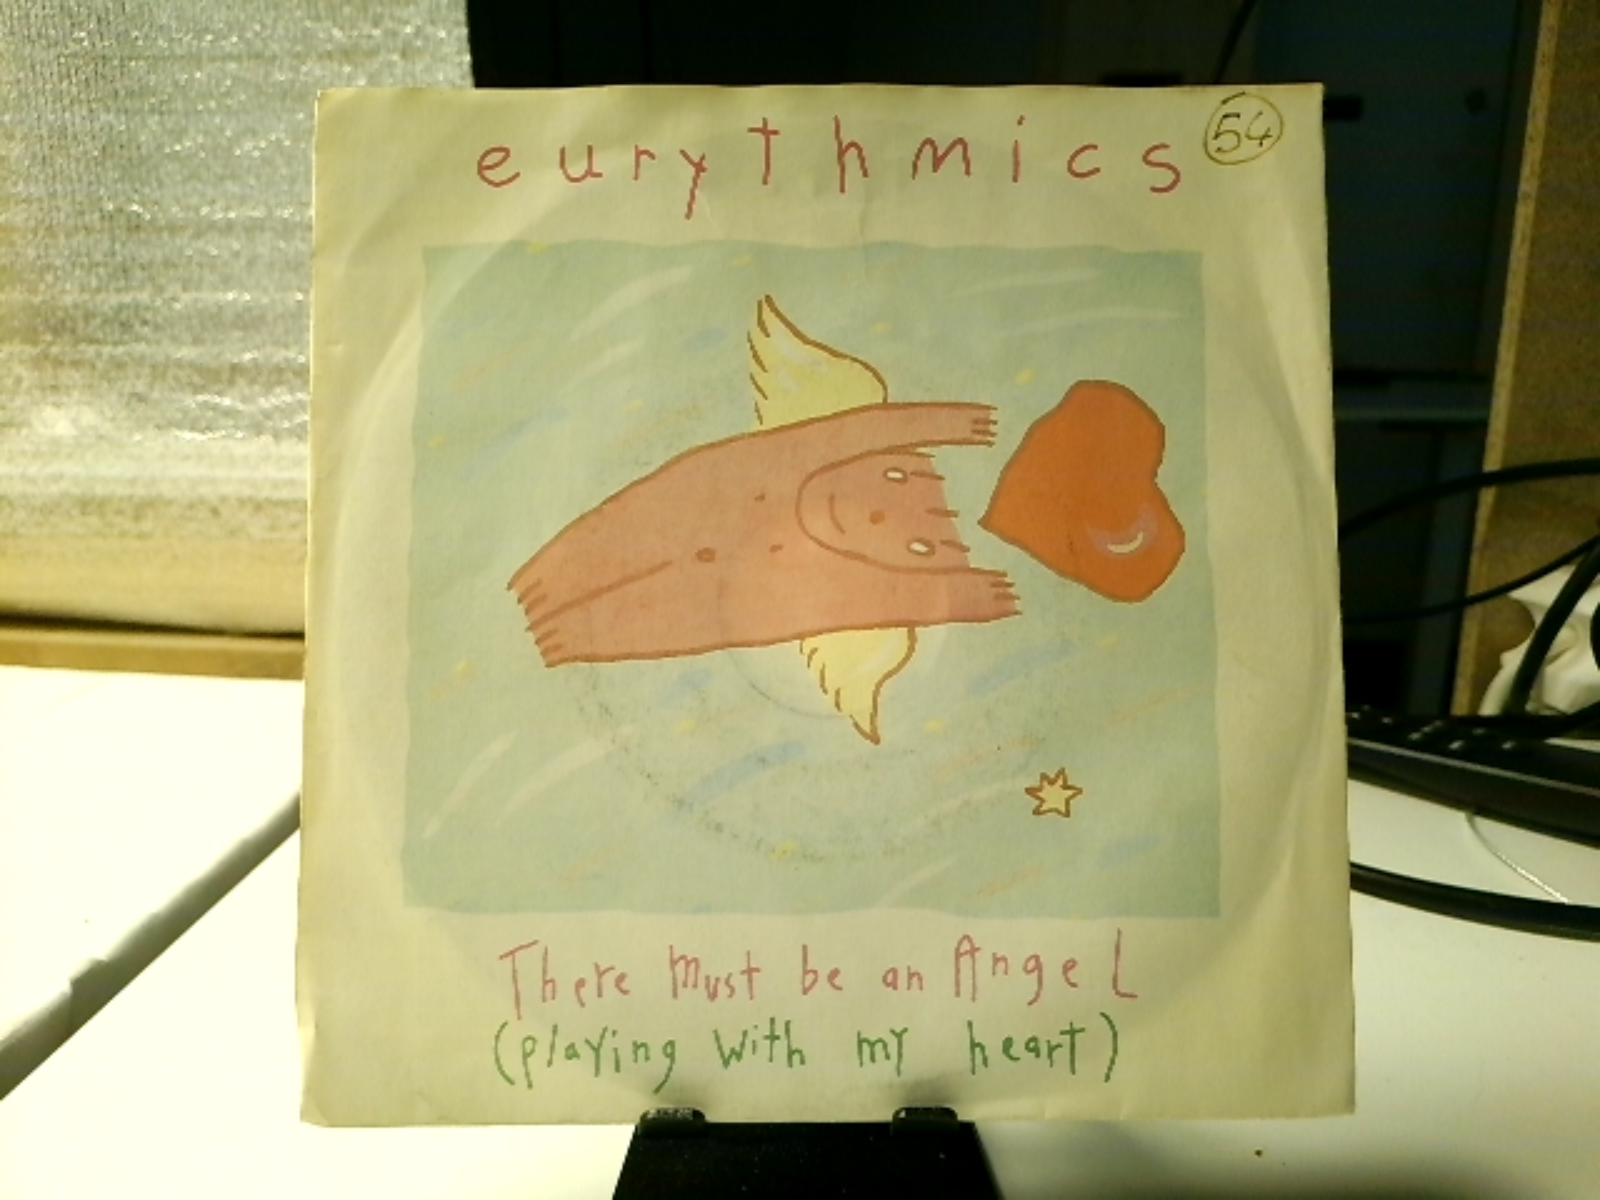 eurythmics
54
There Must be an AngeL
(playing with my heart)